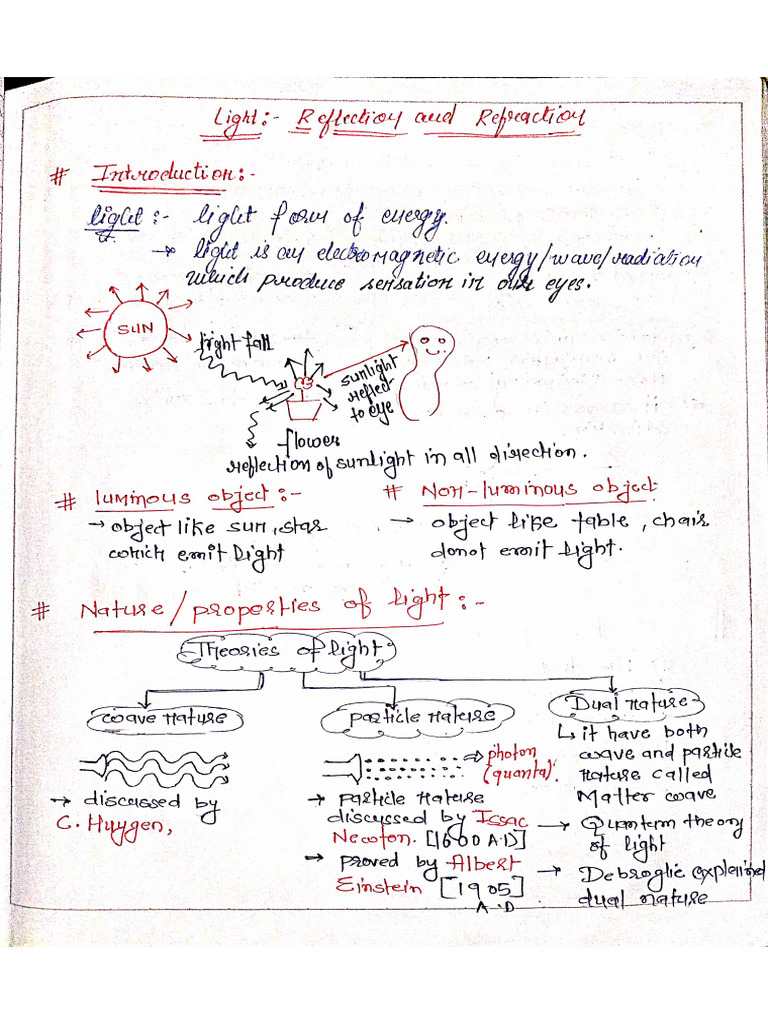 Light:- Reflection and Refraction
# Introduction:-
light:- light form of energy.
→ light is an electromagnetic energy/wave/radiation
which produce sensation in our eyes.
SUN
light fall
sunlight
reflect
to eye
flower
reflection of sunlight in all direction.
# luminous object:-
→ object like sun, star
which emit light
# Non-luminous object
→ object like table, chair
donot emit light.
# Nature/properties of light:-
Theories of light:
wave nature
→ discussed by
C. Huygen,
particle nature
→ photon
(quanta).
→ particle nature
discussed by Issac
Newton. [1600 A.D]
→ proved by Albert
Einstein [1905]
A.D
Dual nature
↳ it have both
wave and particle
nature called
Matter wave
→ Quantem theory
of light
→ Debroglie explained
dual nature